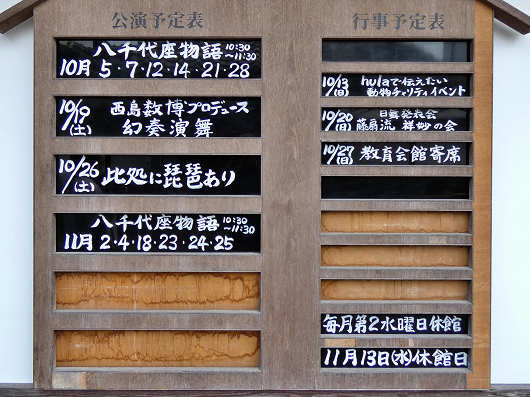 公演予定表
八千代座物語 10:30～11:30
10月 5・7・12・14・21・28
10/19(土) 西島数博プロデュース
幻奏演舞
10/26(土) 此処に琵琶あり
八千代座物語 10:30～11:30
11月 2・4・18・23・24・25
行事予定表
10/13(日) hulaで伝えたい
動物チャリティイベント
10/20(日) 日舞発表会
藤扇流 祥妙の会
10/27(日) 教育会館寄席
毎月第2水曜日休館
11月13日(水)休館日